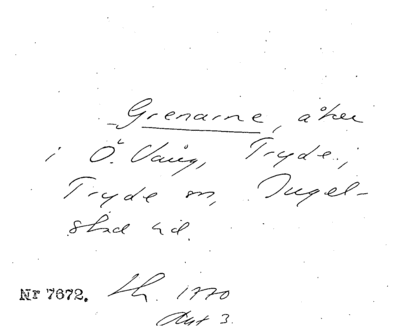 Grenarne, åker
i Ö. Vång, Tryde,
Tryde sn, Ingel-
stad hd.
Nr 7672. Lh. 1770
Akt 3.